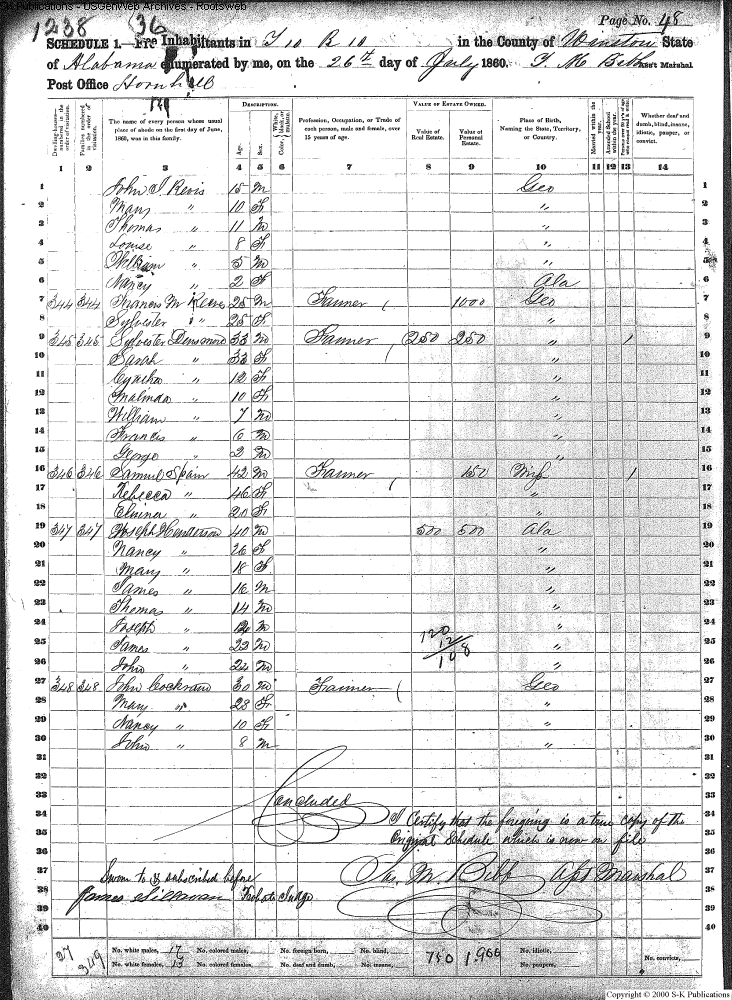 S-K Publications - USGenWeb Archives - Rootsweb
1238 36
Page No. 48
SCHEDULE 1.—Free Inhabitants in T 10 R 10 in the County of Winston State
of Alabama enumerated by me, on the 26th day of July 1860. Bibb Ass't Marshal
Post Office
DESCRIPTION. VALUE OF ESTATE OWNED.
Dwelling-houses—numbered in the order of visitation.
Families numbered in the order of visitation.
The name of every person whose usual place of abode on the first day of June, 1860, was in this family.
Age. Sex. Color, White, black, or mulatto.
Profession, Occupation, or Trade of each person, male and female, over 15 years of age.
Value of Real Estate. Value of Personal Estate.
Place of Birth, Naming the State, Territory, or Country.
Married within the year. Attended School within the year.
Whether deaf and dumb, blind, insane, idiotic, pauper, or convict.
1 2 3 4 5 6 7 8 9 10 11 12 13 14
1 John J. Revis 15 M Geo 1
2 Mary " 10 F " 2
3 Thomas " 11 M " 3
4 Louise " 8 F " 4
5 William " 5 M " 5
6 Nancy " 2 F Ala 6
7 344 344 Francis M 25 M Farmer 1000 Geo 7
8 Sylvester " 25 F " 8
9 345 345 Sylvester Densmore 33 M Farmer 250 250 " 1 9
10 Sarah " 33 F " 10
11 12 F " 11
12 Malinda " 10 F " 12
13 William " 7 M " 13
14 Francis " 6 M " 14
15 George " 2 M " 15
16 346 346 Samuel Spain 42 M Farmer 150 1 16
17 Rebecca " 46 F " 17
18 20 F " 18
19 347 347 Joseph Henderson 40 M 500 500 Ala 19
20 Nancy " 26 F " 20
21 Mary " 18 F " 21
22 James " 16 M " 22
23 Thomas " 14 M " 23
24 Joseph " 12 M " 24
25 James " 22 M " 25
26 John " 24 M " 26
120
12
108
27 348 348 John 30 M Farmer Geo 27
28 Mary " 28 F " 28
29 Nancy " 10 F " 29
30 John " 8 M " 30
31 31
32 32
33 Concluded 33
34 I Certify that the foregoing is a true copy of the 34
35 Original Schedule which is now on file 35
37 Jas. M. Bibb Asst Marshal 37
38 Sworn to & subscribed before 38
39 James Probate Judge 39
40 40
27 349
No. white males, 17 No. colored males, No. foreign born, No. blind, 750 1.900 No. idiotic, No. convicts,
No. white females, 13 No. colored females, No. deaf and dumb, No. insane, No. paupers,
Copyright © 2000 S-K Publications